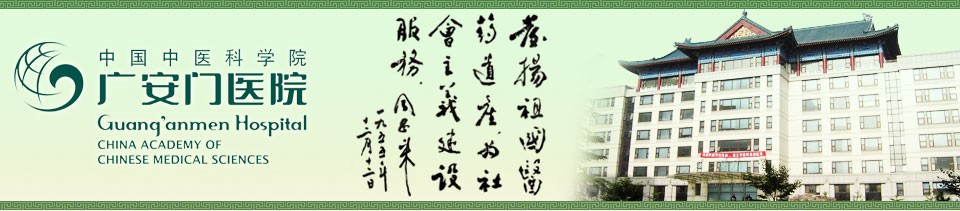 中国中医科学院
广安门医院
Guang'anmen Hospital
CHINA ACADEMY OF
CHINESE MEDICAL SCIENCES
發揚祖國醫
药遗產为社
會主義建設
服務.周恩来
一九五五年
十二月十二日